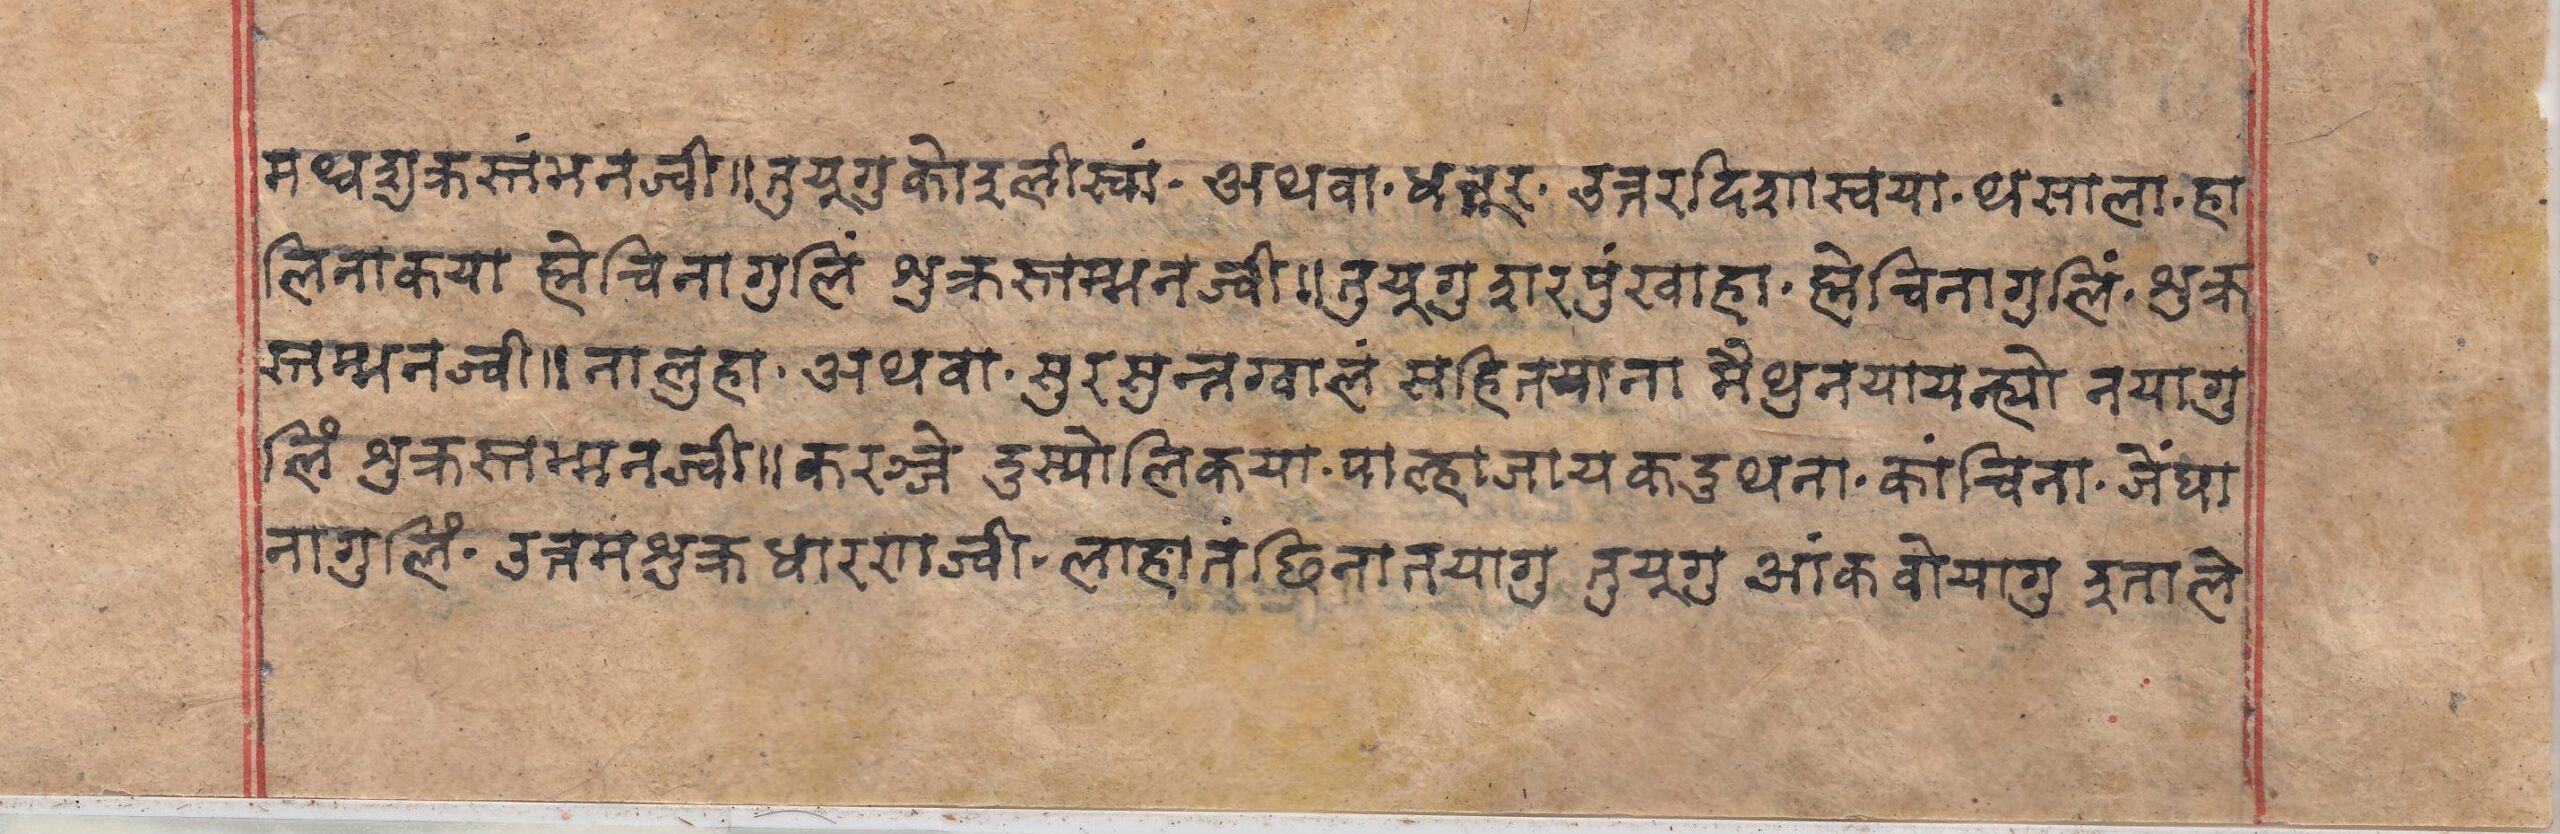 मथ्वशुक्रस्तंभनज्वी॥तुयूगुकोइलीस्वां· अथवा· धत्तूर· उत्तरदिशास्वया· थसाला· हा
लिनाकया ह्नेचिनागुलिं शुक्रस्तम्भनज्वी॥तुयूगुशरपुंखाहा· ह्नेचिनागुलिं· शुक्र
स्तम्भनज्वी॥नालुहा· अथवा· सुरसुन्तग्वालं सहितयाना मैथुनयायन्ह्यो नयागु
लिं शुक्रस्तम्भनज्वी॥करञ्जे दुस्योलिकया· पाल्हाजायकदुथना· कांचिना· जंघा
नागुलिं· उत्तमशुक्रधारणज्वी· लाहातंछिनातयागु तुयूगु आंकवोयागु इताले